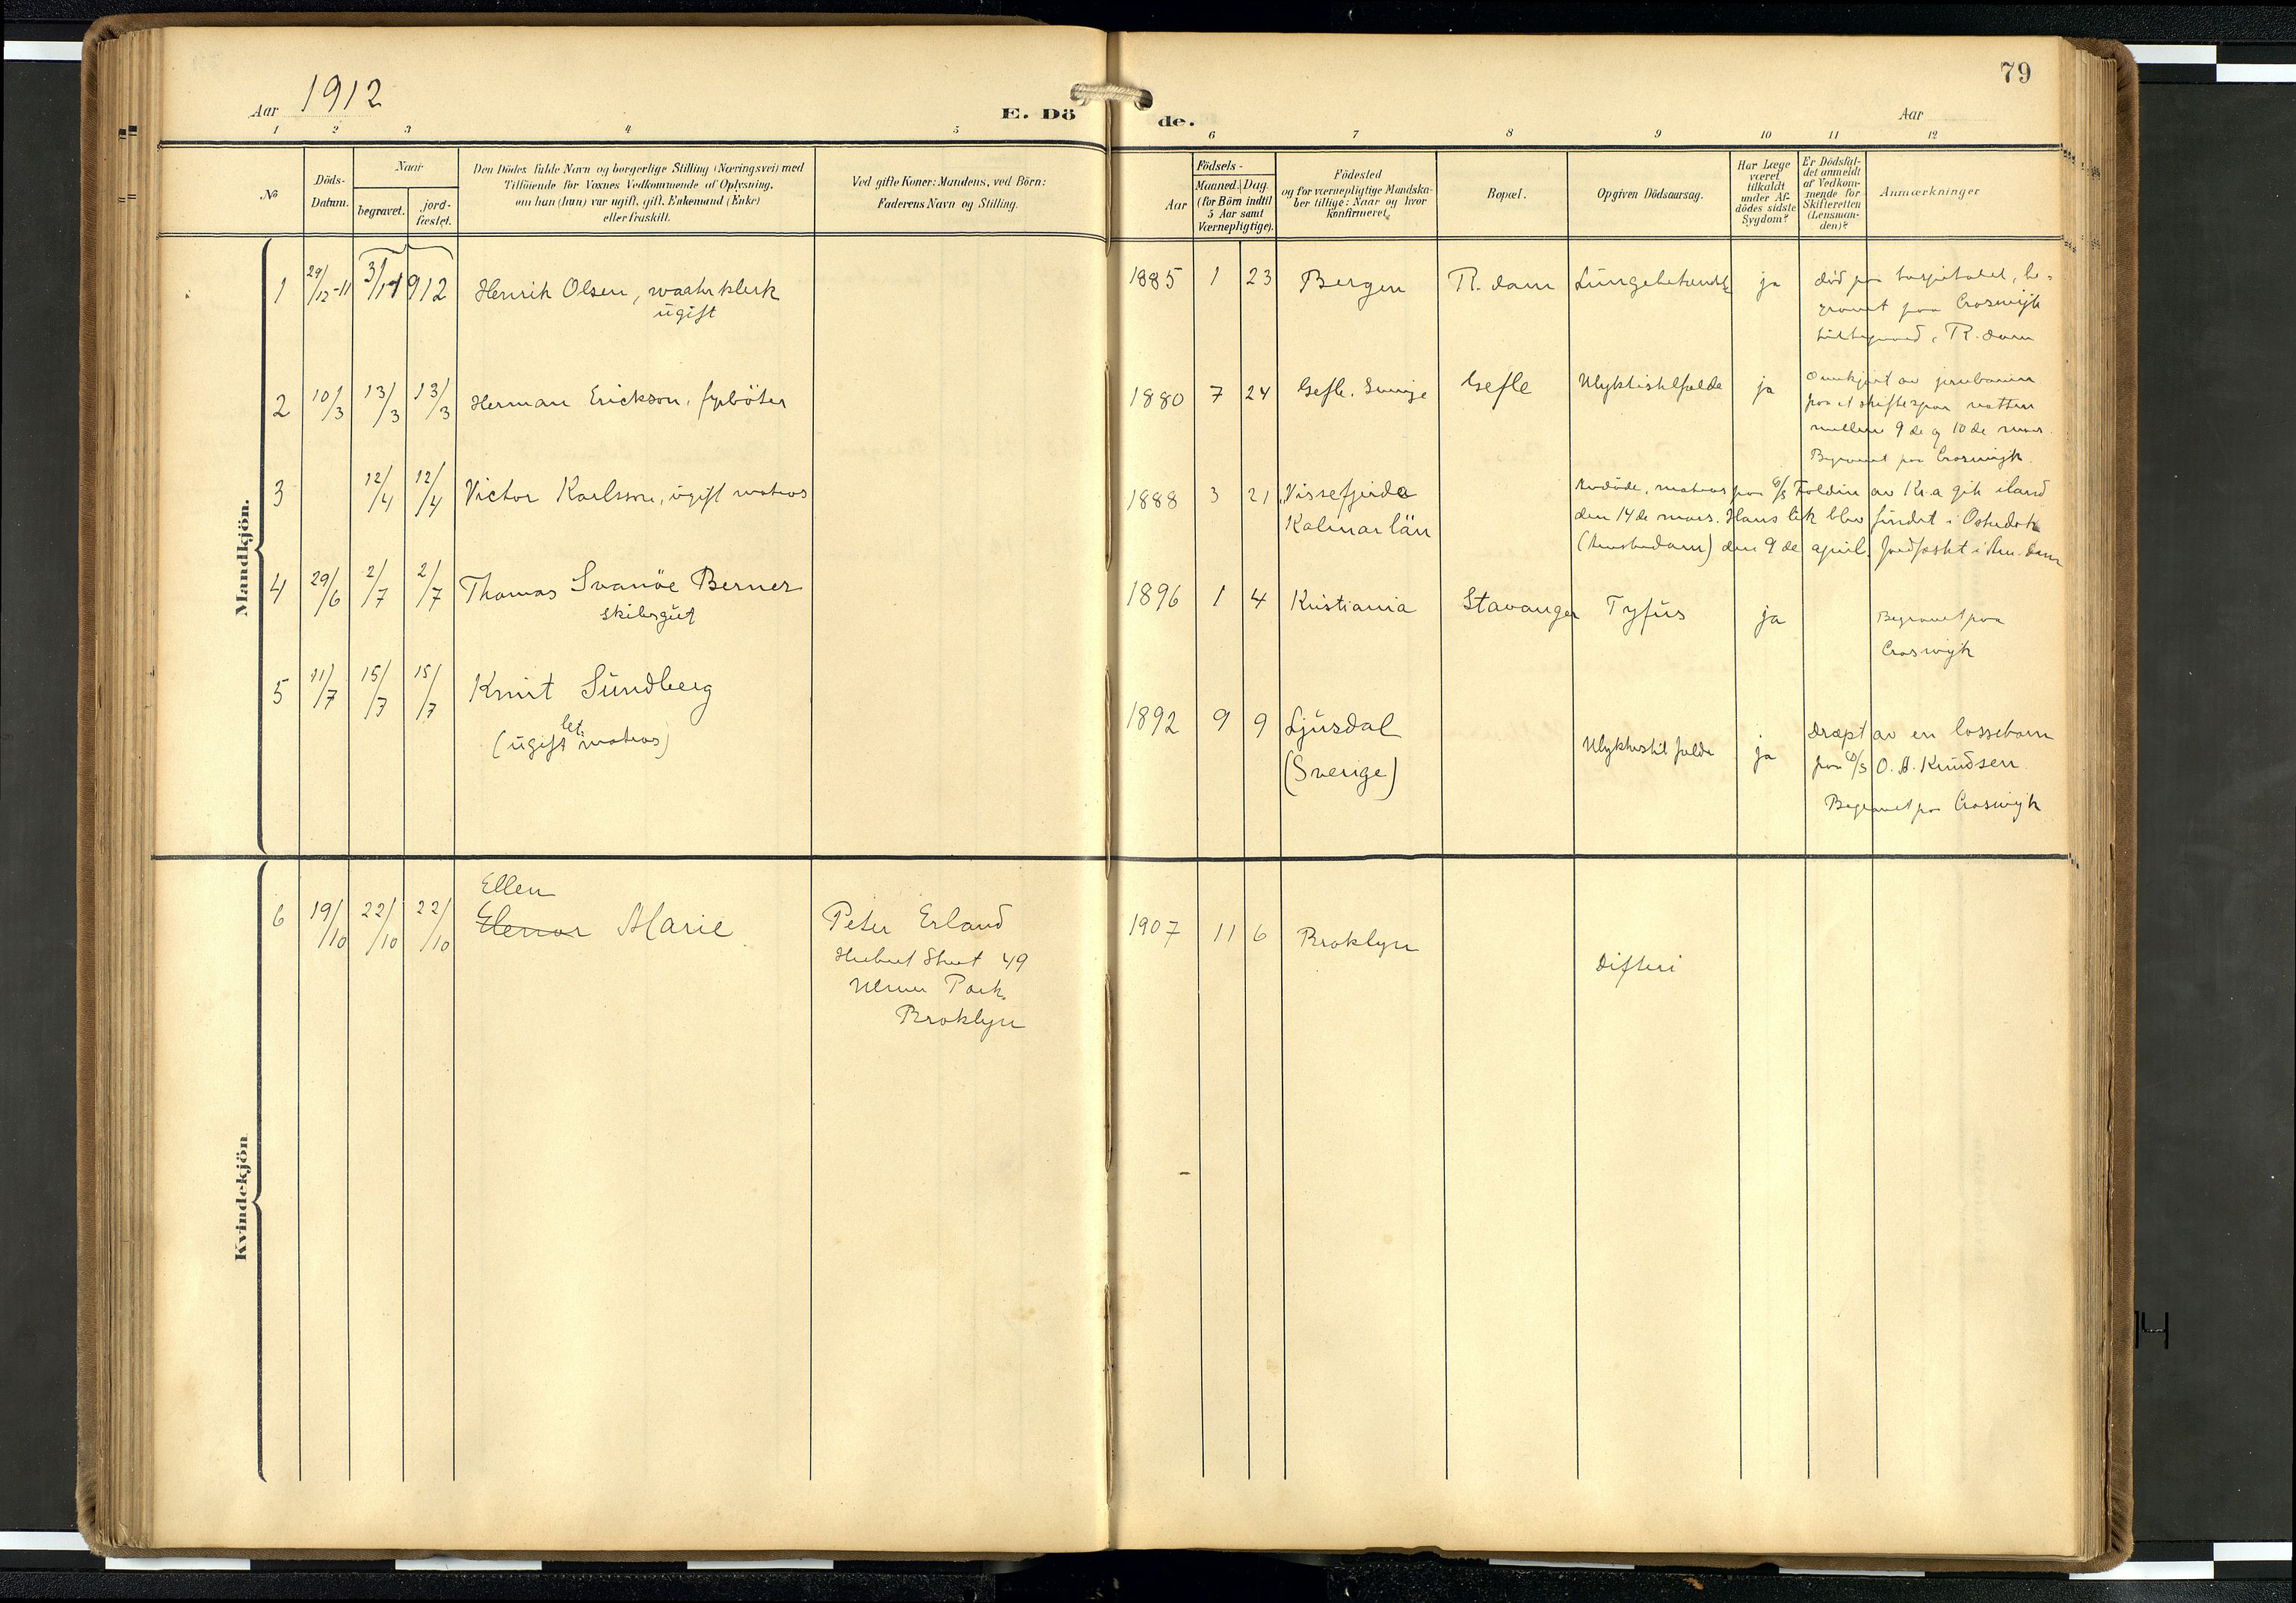 79
Aar 1912
E. Dö
de.
Aar
1 2 3 4 5 6 7 8 9 10 11 12
No
Döds-
Datum.
Naar
begravet.
jord-
fæstet.
Den Dödes fulde Navn og borgerlige Stilling (Næringsvei) med
Tilföiende for Voxnes Vedkommende af Oplysning,
om han (hun) var ugift, gift, Enkemand (Enke)
eller fraskilt.
Ved gifte Koner: Mandens, ved Börn:
Faderens Navn og Stilling.
Aar
Födsels-
Maaned. Dag.
(for Börn indtil
5 Aar samt
Værnepligtige).
Födested
og for værnepligtige Mandska-
ber tillige: Naar og hvor
konfirmeret.
Bopæl.
Opgiven Dödsaarsag.
Har Læge
været
tilkaldt
under Af-
dödes sidste
Sygdom?
Er Dödsfal-
det anmeldt
af Vedkom-
mende for
Skifteretten
(Lensman-
den)?
Anmærkninger
Mandkjön.
1 29/12-11 3/1 1912 Henrik Olsen, waaterklerk
ugift
1885 1 23 Bergen R.dam Lungebetændelse ja död paa hospitalet, be-
gravet paa Croswijk
R.dam
2 10/3 13/3 13/3 Herman Erickson, fyrböter
1880 7 24 Gefle. Sverige Gefle Ulykkestilfælde ja Overkjört av jernbanen
paa et skiftespor natten
mellem 9de og 10de mars.
Begravet paa Croswijk
3 12/4 12/4 Victor Karlsson, ugift matros
1888 3 21 Vissefjerda
Kalmar län
Avdöde, matros paa D/S Foldin av Kr.a gik iland
den 14de mars. Hans lik blev fundet i Osterdok
(Amsterdam) den 9de april. Jordfæstet i Am.dam
4 29/6 2/7 2/7 Thomas Svanöe Berner
skibsgut
1896 1 4 Kristiania Stavanger Tyfus ja Begravet paa
Croswijk
5 11/7 15/7 15/7 Knut Sundberg
(ugift let. matros)
1892 9 9 Ljusdal
(Sverige)
Ulykkestilfælde ja Dræpt av en lossebom
paa D/S O. A. Knudsen.
Begravet paa Croswijk
Kvindekjön
6 19/10 22/10 22/10 Ellen
Elenor Marie
Peter Erland
Hubert Street 49
Ulmer Park
Broklyn
1907 11 6 Broklyn
Difteri